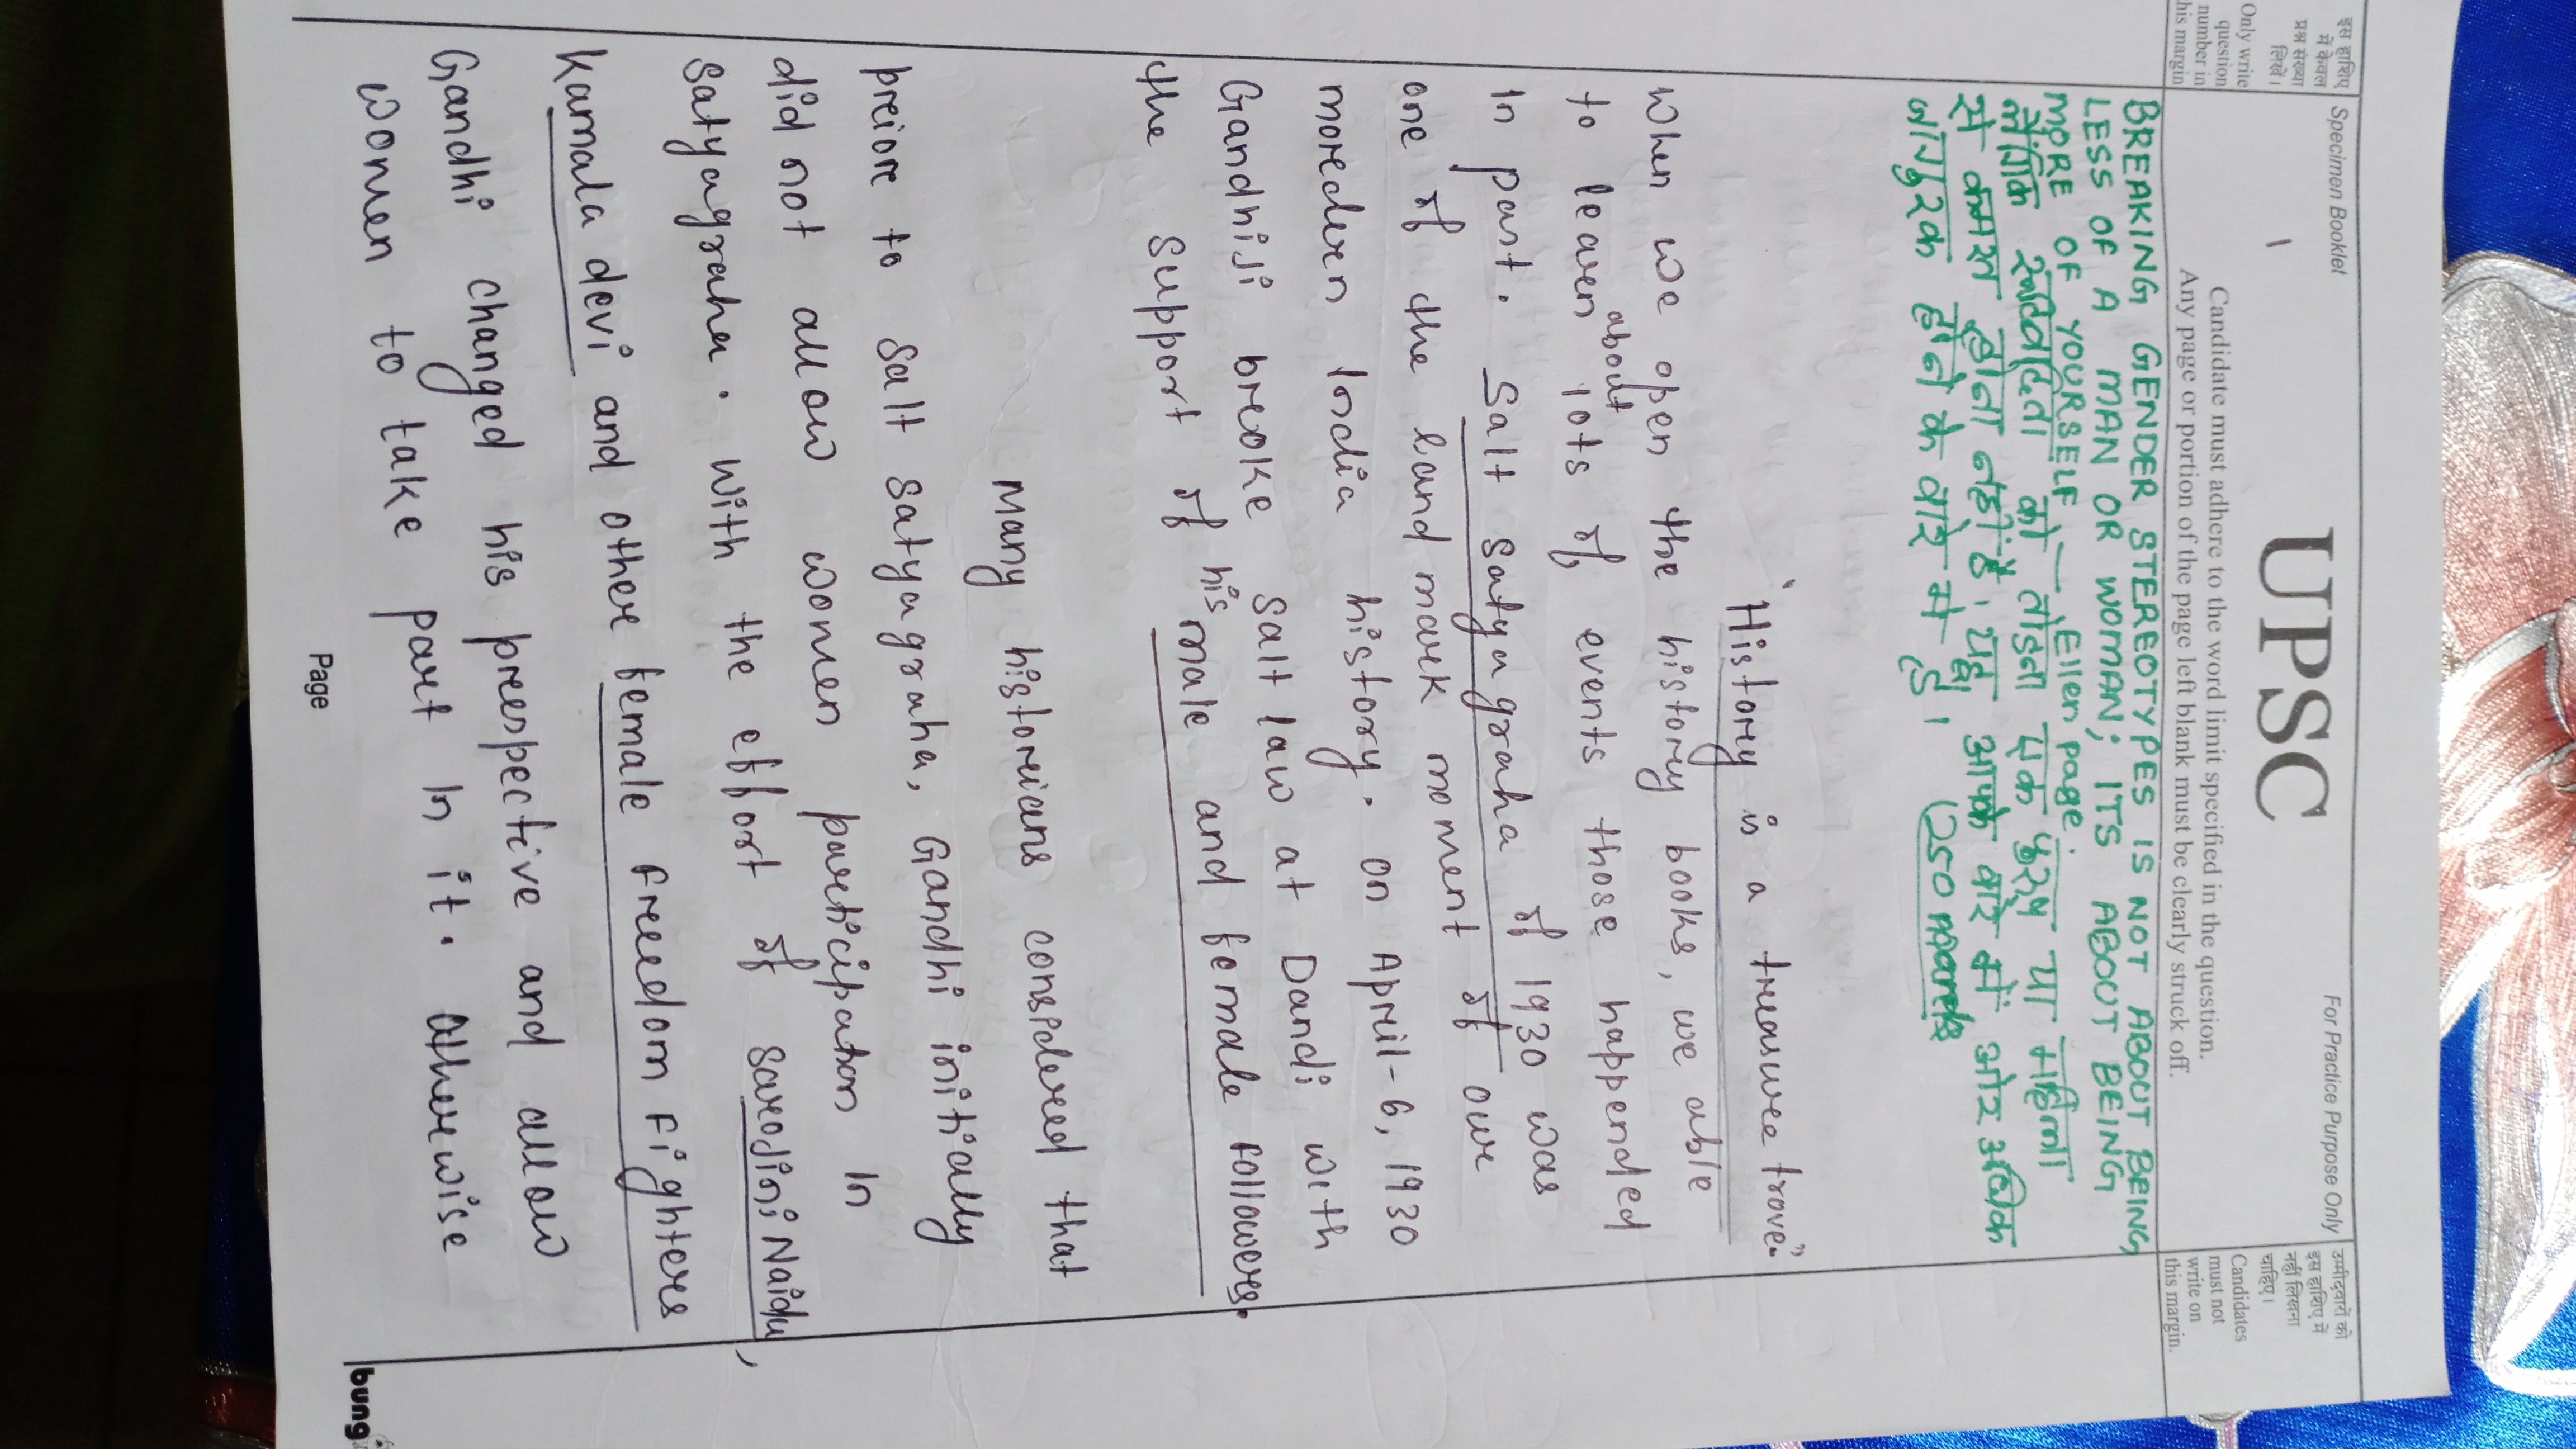 इस हाशिए में केवल प्रश्न संख्या लिखें।
Only write question number in his margin
Specimen Booklet
1
UPSC
For Practice Purpose Only
Candidate must adhere to the word limit specified in the question.
Any page or portion of the page left blank must be clearly struck off.
उम्मीदवारों को इस हाशिए में नहीं लिखना चाहिए।
Candidates must not write on this margin.
BREAKING GENDER STEREOTYPES IS NOT ABOUT BEING
LESS OF A MAN OR WOMAN; ITS ABOUT BEING
MORE OF YOURSELF — Ellen page.
लैंगिक रूढ़िवादिता को तोड़ना एक पुरुष या महिला
से कमतर होना नहीं है, यह आपके बारे में और अधिक
जागरुक होने के बारे मे है। (250
"History is a treasure trove."
When we open the history books, we able
to learn about lots of, events those happended
in past. Salt satyagraha of 1930 was
one of the land mark moment of our
moredern India history. on April-6, 1930
Gandhiji breoke salt law at Dandi with
the support of his male and female followers.
Many historians considered that
preiore to salt satyagraha, Gandhi initially
did not allow women participation in
satyagraha. with the effort of sarojini Naidu,
Kamala devi and other female freedom fighters
Gandhi changed his prerspective and allow
women to take part in it. otherwise
Page
bung